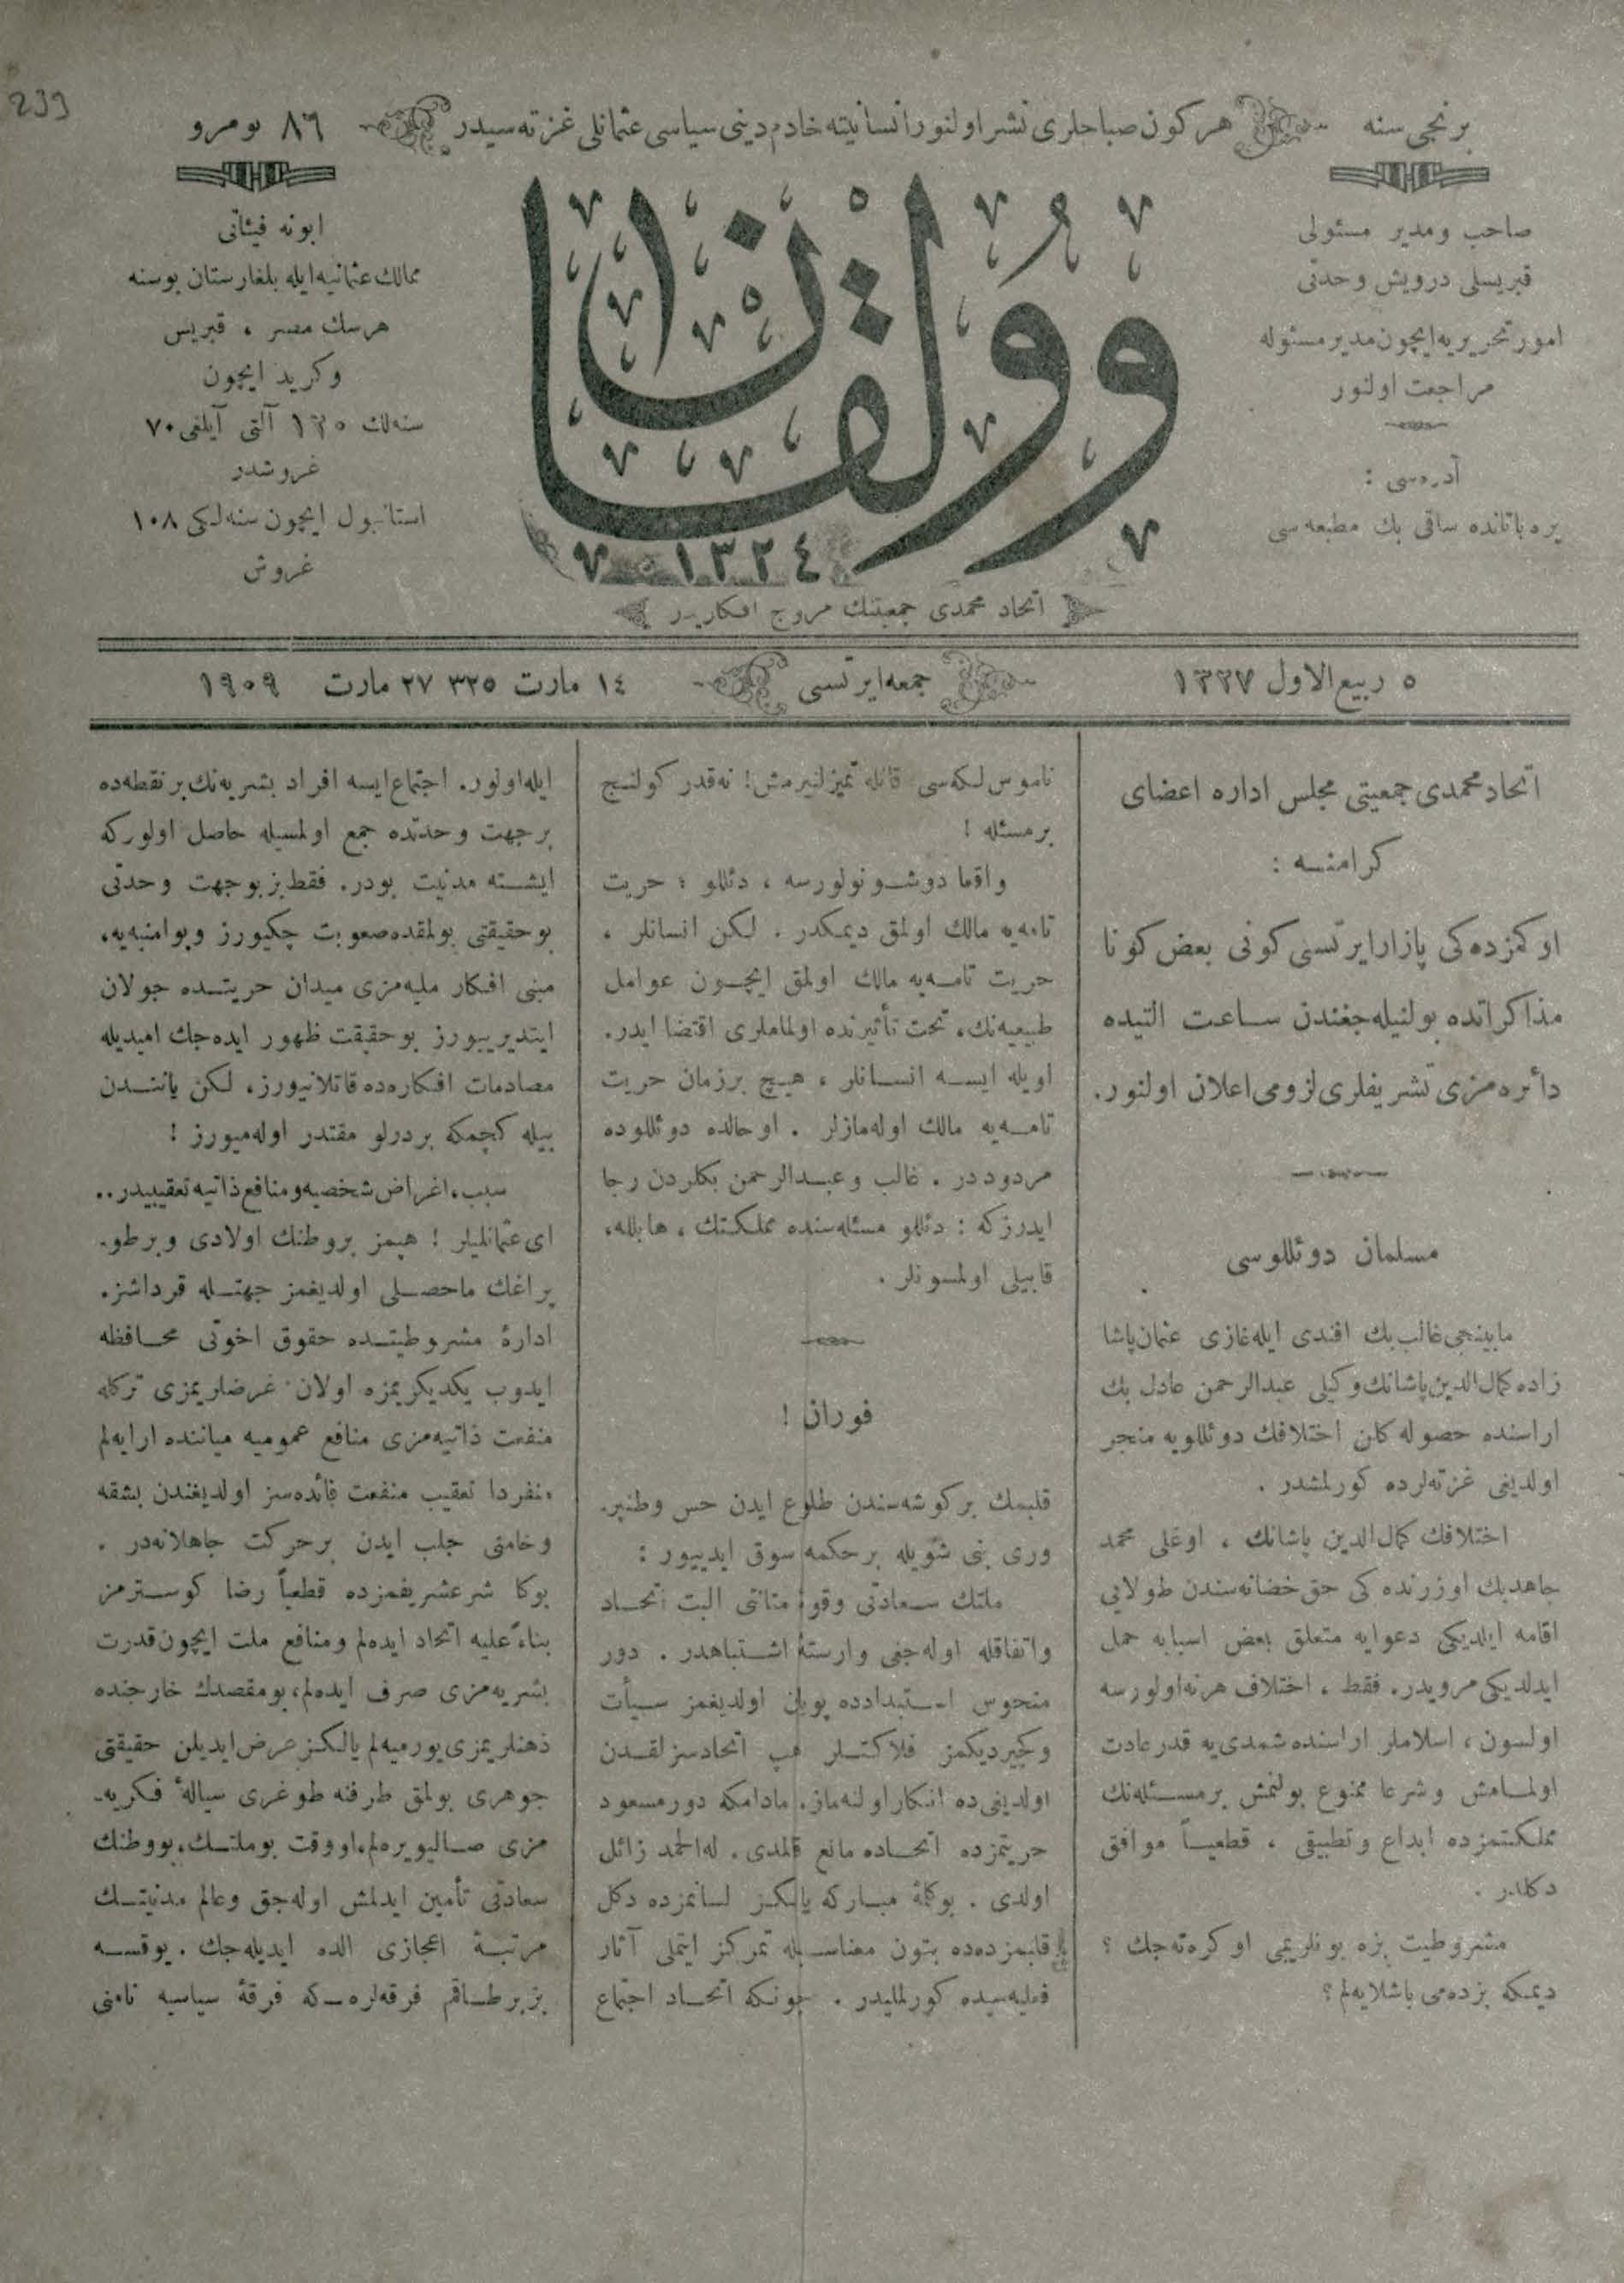 239
برنجی سنه
هر كون صباحلری نشر اولنور انسانیته خادم دینی سیاسی عثمانلی غزته سیدر
٨٦ نومرو
صاحب و مدیر مسئولی
قبریسلی درویش وحدتی
امور تحریریه ایچون مدیر مسئوله
مراجعت اولنور
آدرسی :
یره باتانده ساقی بك مطبعه سی
وولقان
١٣٢٤
اتحاد محمدی جمعیتنك مروج افكاریدر
ابونه فیئاتی
ممالك عثمانیه ایله بلغارستان بوسنه
هرسك مصر ، قبریس
وكرید ایچون
سنه لك ١٢٥ آلتی آیلغی ٧٠
غروشدر
استانبول ایچون سنه لكی ١٠٨
غروش
٥ ربیع الاول ١٣٢٧
جمعه ایرتسی
١٤ مارت ٣٢٥ ٢٧ مارت ١٩٠٩
اتحاد محمدی جمعیتی مجلس اداره اعضای
كرامنه :
اوكمزده كی پازار ایرتسی كونی بعض كونا
مذاكراتده بولنیله جغندن ساعت التیده
دائره مزی تشریفلری لزومی اعلان اولنور.
مسلمان دوئللوسی
مابینجی غالب بك افندی ایله غازی عثمان پاشا
زاده كمال الدین پاشانك وكیلی عبدالرحمن عادل بك
اراسنده حصوله كلن اختلافك دوئللویه منجر
اولدیغی غزته لرده كورلمشدر .
اختلافك كمال الدین پاشانك ، اوغلی محمد
جاهد بك اوزرنده كی حق خضانه سندن طولایی
اقامه ایلدیكی دعوایه متعلق بعض اسبابه حمل
ایدلدیكی مرویدر. فقط ، اختلاف هرنه اولورسه
اولسون ، اسلاملر اراسنده شمدی یه قدر عادت
اولمامش و شرعا ممنوع بولنمش برمسئله نك
مملكتمزده ابداع و تطبیقی ، قطعیاً موافق
دكلدر .
مشروطیت بزه بونلریمی اوكره ته جك ؟
دیمكه بزده می باشلایه لم ؟
ناموس لكه سی قانله تمیزلنیرمش! نه قدر كولنج
برمسئله !
واقعا دوشونولورسه ، دئللو ؛ حریت
تامه یه مالك اولمق دیمكدر . لكن انسانلر ،
حریت تامه یه مالك اولمق ایچون عوامل
طبیعیه نك، تحت تأثیرنده اولماملری اقتضا ایدر.
اویله ایسه انسانلر ، هیچ بر زمان حریت
تامه یه مالك اوله مازلر . او حالده دوئللوده
مردوددر . غالب و عبدالرحمن بكلردن رجا
ایدرزكه : دئللو مسئله سنده مملكتك ، هابله،
قابیلی اولمسونلر .
فوران !
قلبمك بر كوشه سندن طلوع ایدن حس وطنپر-
وری بنی شویله بر حكمه سوق ایدییور :
ملتك سعادتی وقوۀ متانتی البت اتحاد
واتفاقله اوله جغی وارستۀ اشتباهدر . دور
منحوس استبدادده پویان اولدیغمز سیأت
وكچیردیكمز فلاكتلر هپ اتحادسزلقدن
اولدیغی ده انكار اولنه ماز. مادامكه دور مسعود
حریتمزده اتحاده مانع قلمدی . له الحمد زائل
اولدی . بو كلمۀ مباركه یالكز لسانمزده دكل
قلبمزده ده بتون معناسیله تمركز ایتملی آثار
فعلیه سیده كورلملیدر . چونكه اتحاد اجتماع
ایله اولور. اجتماع ایسه افراد بشریه نك بر نقطه ده
بر جهت وحدتده جمع اولمسیله حاصل اولوركه
ایشته مدنیت بودر. فقط بز بو جهت وحدتی
بو حقیقتی بولمقده صعوبت چكیورز و بو امنیه یه،
مبنی افكار ملیه مزی میدان حریتده جولان
ایتدیرییورز بو حقیقت ظهور ایده جك امیدیله
مصادمات افكاره ده قاتلانیورز، لكن یانندن
بیله كچمكه بر درلو مقتدر اوله میورز !
سبب، اغراض شخصیه و منافع ذاتیه تعقیبیدر..
ای عثمانلیلر ! هپمز بر وطنك اولادی و بر طو-
پراغك ماحصلی اولدیغمز جهتله قرداشز.
ادارۀ مشروطیتده حقوق اخوتی محافظه
ایدوب یكدیكریمزه اولان غرضلریمزی تركله
منفعت ذاتیه مزی منافع عمومیه میاننده ارایه لم
منفردا تعقیب منفعت فائده سز اولدیغندن بشقه
وخامتی جلب ایدن بر حركت جاهلانه در .
بوكا شرع شریفمزده قطعیاً رضا كوسترمز
بناءً علیه اتحاد ایده لم و منافع ملت ایچون قدرت
بشریه مزی صرف ایده لم، بو مقصدك خارجنده
ذهنلریمزی یورمیه لم یالكز عرض ایدیلن حقیقتی
جوهری بولمق طرفنه طوغری سیالۀ فكریه-
مزی صالیویره لم، او وقت بو ملتك، بو وطنك
سعادتی تأمین ایدلمش اوله جق و عالم مدنیتك
مرتبۀ اعجازی الده ایدیله جك . یوقسه
بز بر طاقم فرقه لره-كه فرقۀ سیاسیه نامنی